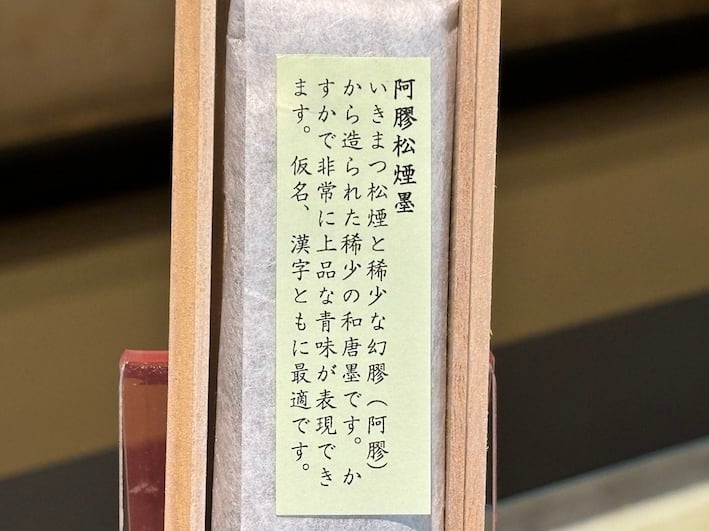 阿膠松煙墨
いきまつ松煙と稀少な幻膠（阿膠）
から造られた稀少の和唐墨です。か
すかで非常に上品な青味が表現でき
ます。仮名、漢字ともに最適です。